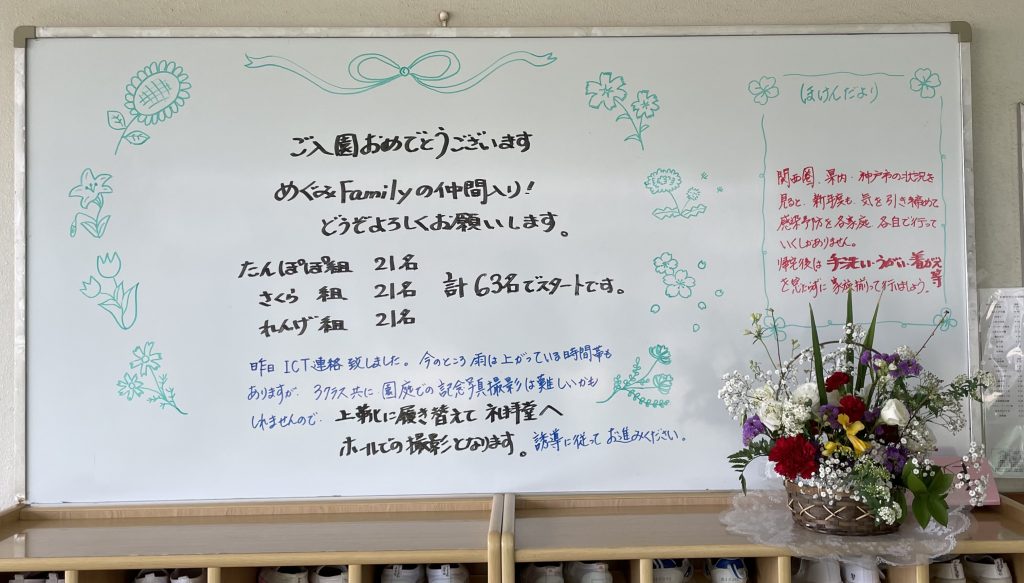 ご入園おめでとうございます
めぐみFamilyの仲間入り!
どうぞよろしくお願いします。
たんぽぽ組 21名
さくら 組 21名
れんげ組 21名
計 63名でスタートです。
昨日 ICT連絡致しました。今のところ雨は上がっている時間帯も
ありますが、3クラス共に 園庭での記念写真撮影は難しいかも
しれませんので、上靴に履き替えて 礼拝堂へ
ホールでの撮影となります。誘導に従って お進みください。
ほけんだより
関西圏、県内・神戸市の状況を
見ると、新年度も、気を引き締めて
感染予防を各家庭、各自で行って
いくしかありません。
帰宅後は 手洗い・うがい・着がえ等
を見わずに 家族揃って行いましょう。